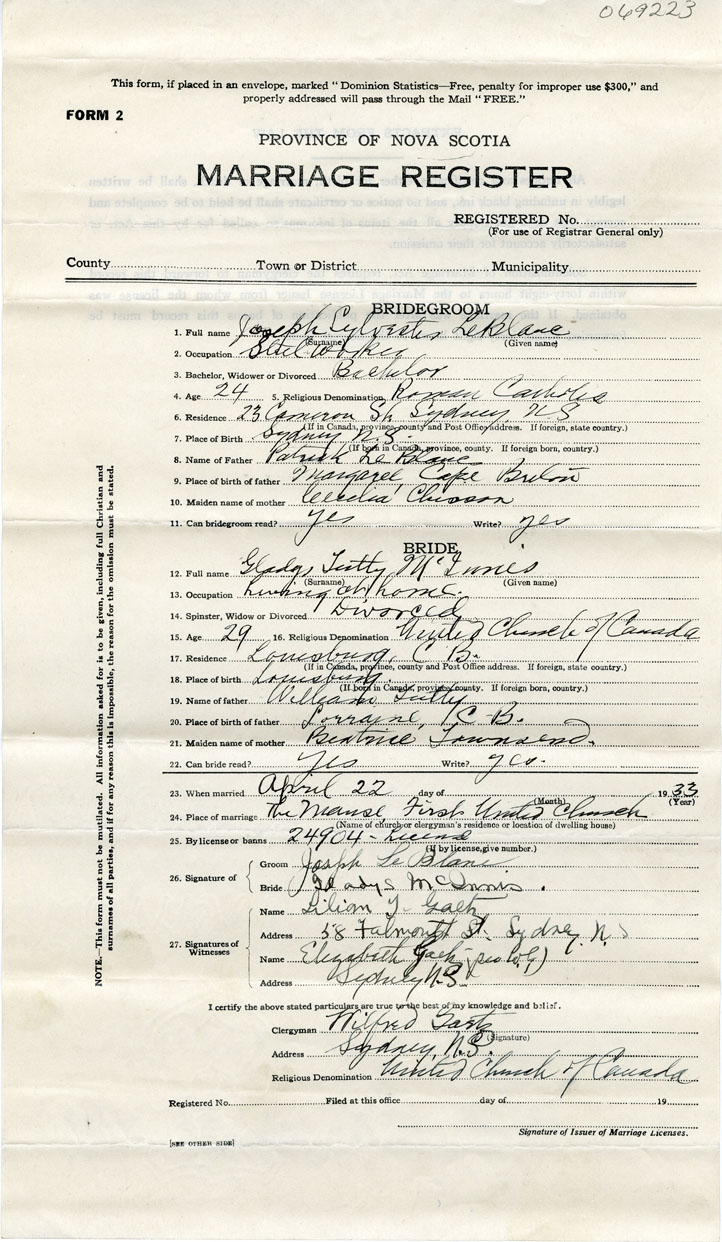 069223
This form, if placed in an envelope, marked "Dominion Statistics—Free, penalty for improper use $300," and
properly addressed will pass through the Mail "FREE."
FORM 2
PROVINCE OF NOVA SCOTIA
MARRIAGE REGISTER
REGISTERED No.
(For use of Registrar General only)
County Town or District Municipality
BRIDEGROOM
1. Full name Joseph Sylvester LeBlanc
(Surname) (Given name)
2. Occupation Steelworker
3. Bachelor, Widower or Divorced Bachelor
4. Age 24 5. Religious Denomination Roman Catholic
6. Residence 23 Cameron St. Sydney NS
(If in Canada, province, county and Post Office address. If foreign, state country.)
7. Place of Birth Sydney N.S.
(If born in Canada, province, county. If foreign born, country.)
8. Name of Father Patrick LeBlanc
9. Place of birth of father Margaree, Cape Breton
10. Maiden name of mother Cecelia Chisson
11. Can bridegroom read? yes Write? yes
BRIDE
12. Full name Gladys Tutty McInnis
(Surname) (Given name)
13. Occupation Living at home.
14. Spinster, Widow or Divorced Divorced
15. Age 29 16. Religious Denomination United Church of Canada
17. Residence Louisburg, C.B.
(If in Canada, province, county and Post Office address. If foreign, state country.)
18. Place of birth Louisburg.
(If born in Canada, province, county. If foreign born, country.)
19. Name of father William Tutty
20. Place of birth of father Lorraine, C.B.
21. Maiden name of mother Beatrice Townsend.
22. Can bride read? Yes Write? yes.
23. When married April 22 day of 1933
(Month) (Year)
24. Place of marriage The Manse, First United Church
(Name of church or clergyman's residence or location of dwelling house)
25. By license or banns 24904 - License
(If by license, give number.)
26. Signature of Groom Joseph LeBlanc
Bride Gladys McInnis.
27. Signatures of Witnesses
Name Lilian Y. Gaetz
Address 58 Falmouth St. Sydney N.S
Name Elizabeth Gaetz
Address Sydney N.S.
I certify the above stated particulars are true to the best of my knowledge and belief.
Clergyman Wilfred Gaetz
(Signature)
Address Sydney, N.S.
Religious Denomination United Church of Canada
Registered No. Filed at this office day of 19
Signature of Issuer of Marriage Licenses.
[SEE OTHER SIDE]
NOTE.—This form must not be mutilated. All information asked for is to be given, including full Christian and
surnames of all parties, and if for any reason this is impossible, the reason for the omission must be stated.